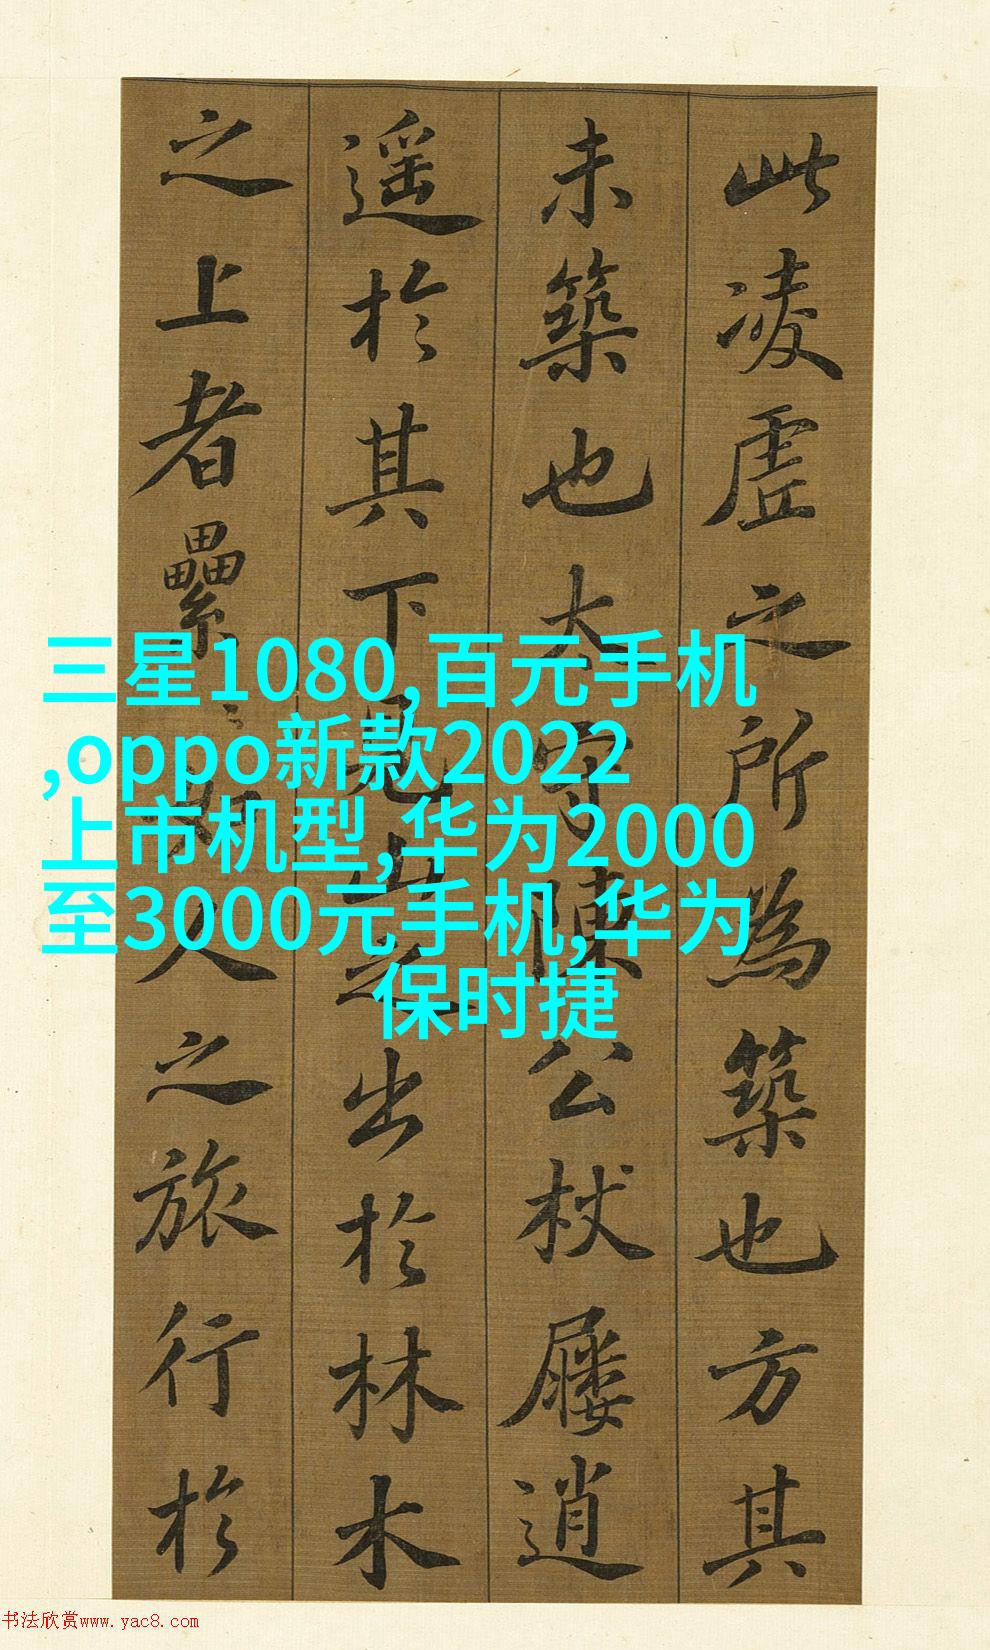 此凌虛之所為築也方其
未築也太守陳公杖屨逍
遥於其下見山之出於林木
之上者纍〻如人之旅行於
三星1080,百元手机
,oppo新款2022
上市机型,华为2000
至3000元手机,华为
保时捷
书法欣赏www.yac8.com